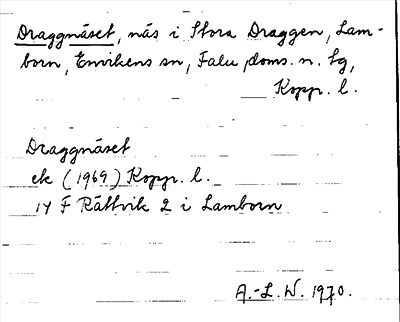 Draggnäset, näs i Stora Draggen, Lam-
born, Envikens sn, Falu doms. n. tg,
Kopp. l.
Draggnäset
ek (1969) Kopp. l.
14 F Rättvik 2 i Lamborn
A.-L. W. 1970.